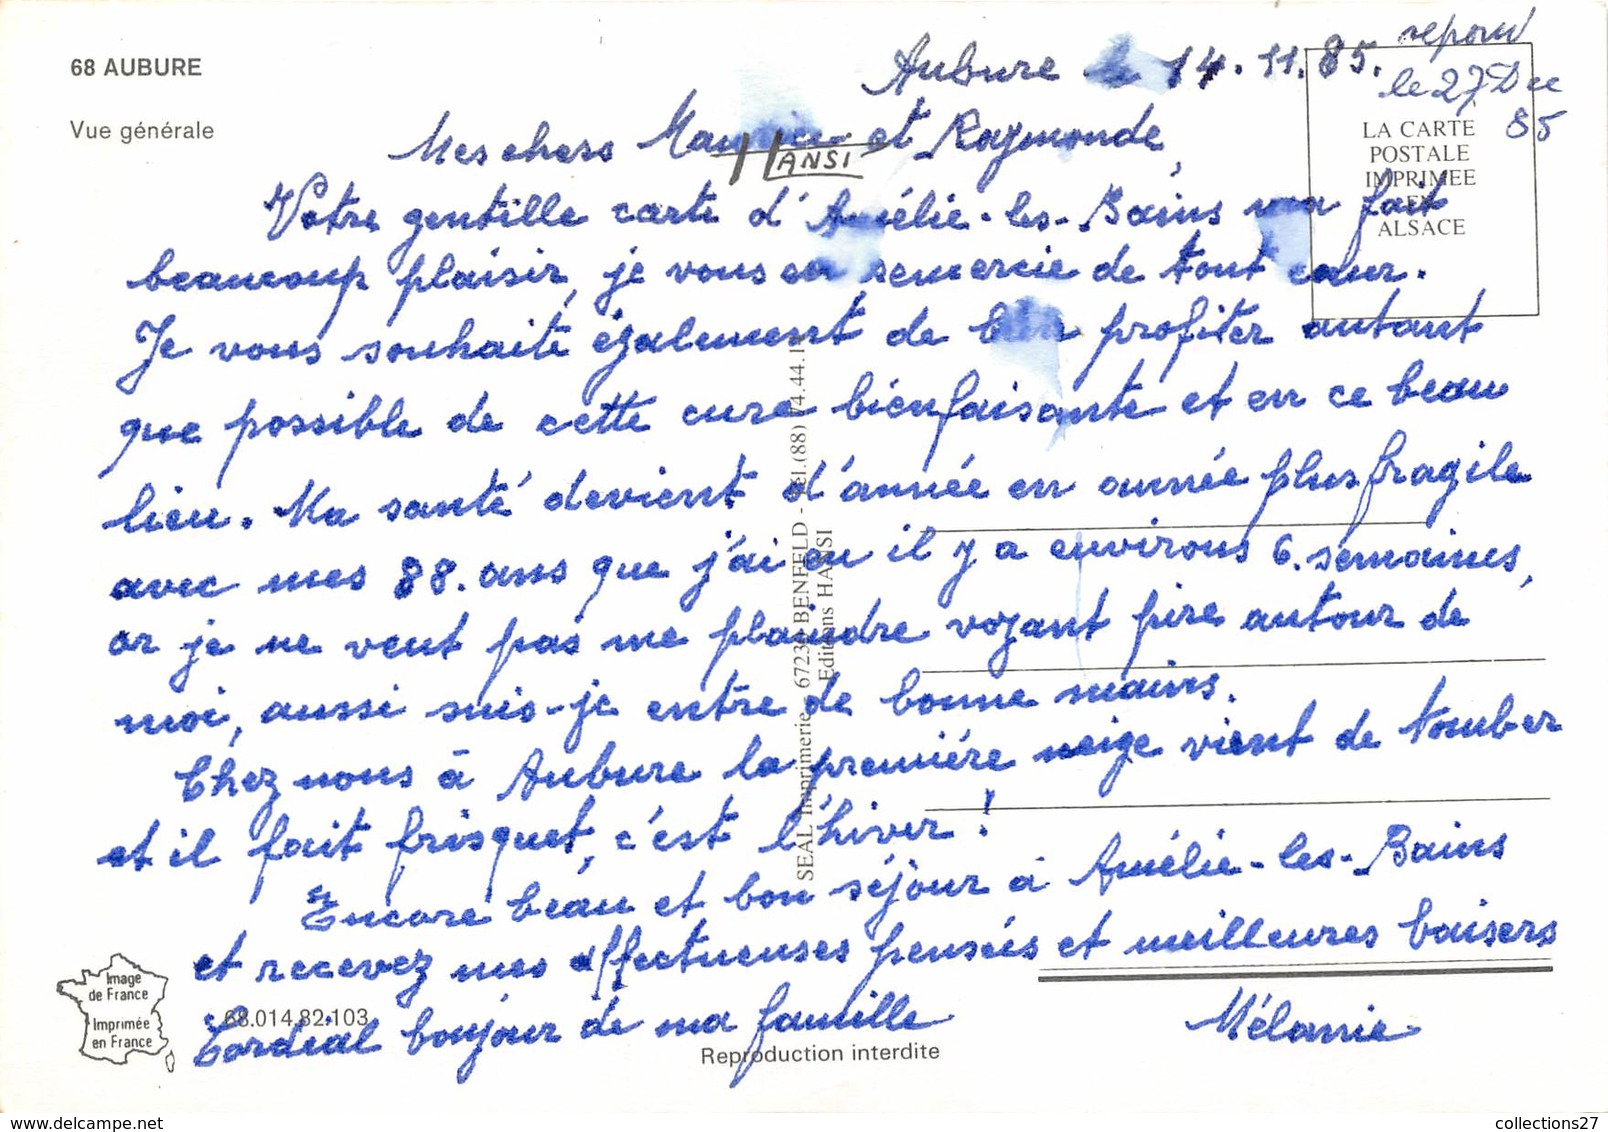 68 AUBURE
Vue générale
Aubure le 14.11.85.
repond
le 27 Dec
85
LA CARTE
POSTALE
IMPRIMEE
EN
ALSACE
HANSI
Mes chers Maurice et Raymonde,
Votre gentille carte d'Amélie-les-Bains m'a fait
beaucoup plaisir, je vous en remercie de tout cœur.
Je vous souhaite également de bien profiter autant
que possible de cette cure bienfaisante et en ce beau
lieu. Ma santé devient d'année en année plus fragile
avec mes 88.ans que j'ai eu il y a environs 6.semaines,
or je ne veut pas me plaindre voyant pire autour de
moi, aussi suis-je entre de bonne mains.
Chez nous à Aubure la premiére neige vient de tomber
et il fait frisquet, c'est l'hiver!
Encore beau et bon séjour à Amélie-les-Bains
et recevez mes affectueuses pensées et meilleures baisers
Cordial bonjour de ma famille
Mélanie
SEAL Imprimerie 67230 BENFELD - Tél.(88) 74.44.1
Editions HANSI
Image
de France
Imprimée
en France
68.014.82.103
Reproduction interdite
collections27